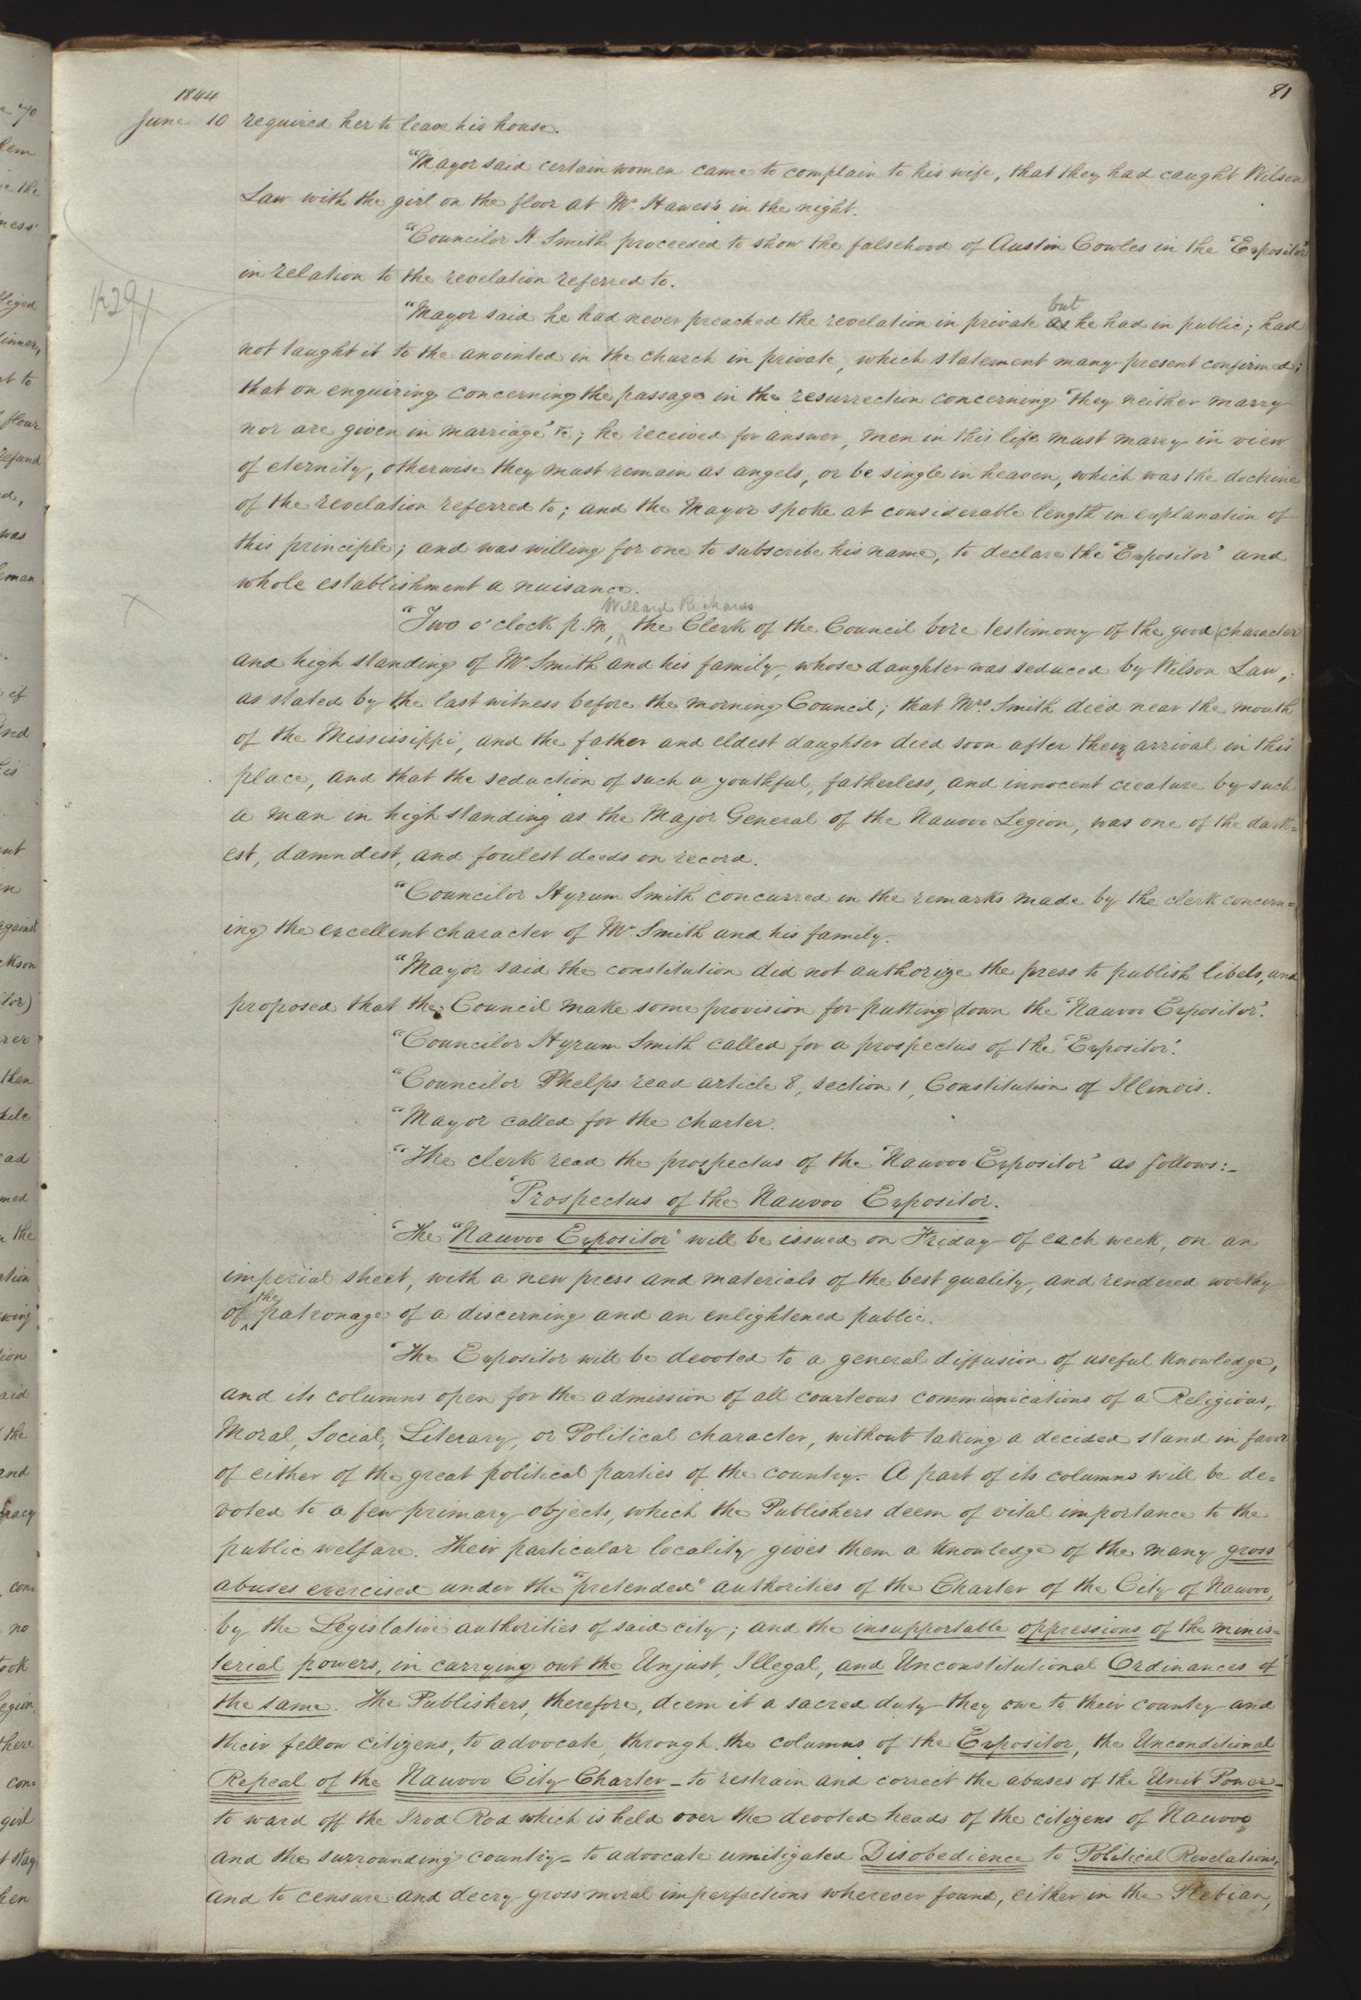 81
1844
June 10 required her to leave his house.
"Mayor said certain women came to complain to his wife, that they had caught Wilson
Law with the girl on the floor at Mr. Hawes's in the night.
"Councilor H. Smith proceeded to show the falsehood of Austin Cowles in the 'Expositor'
in relation to the revelation referred to.
"Mayor said he had never preached the revelation in private as but he had in public; had
not taught it to the anointed in the church in private, which statement many present confirmed;
that on enquiring concerning the passage in the resurrection concerning 'they neither marry
nor are given in marriage' &c; he received for answer, men in this life must marry in view
of eternity, otherwise they must remain as angels, or be single in heaven, which was the doctrine
of the revelation referred to; and the Mayor spoke at considerable length in explanation of
this principle; and was willing for one to subscribe his name, to declare the 'Expositor' and
whole establishment a nuisance.
"Two o'clock p.m., Willard Richards the Clerk of the Council bore testimony of the good character
and high standing of Mr. Smith and his family, whose daughter was seduced by Wilson Law,
as stated by the last witness before the morning Council; that Mrs. Smith died near the mouth
of the Mississippi, and the father and eldest daughter died soon after their arrival in this
place, and that the seduction of such a youthful, fatherless, and innocent creature by such
a man in high standing as the Major General of the Nauvoo Legion, was one of the dark=
est, damndest, and foulest deeds on record.
"Councilor Hyrum Smith concurred in the remarks made by the clerk concern=
ing the excellent character of Mr. Smith and his family.
"Mayor said the constitution did not authorize the press to publish libels, and
proposed that the Council make some provision for putting down the 'Nauvoo Expositor'.
"Councilor Hyrum Smith called for a prospectus of the 'Expositor'.
"Councilor Phelps read article 8, section 1, Constitution of Illinois.
"Mayor called for the charter.
"The clerk read the prospectus of the 'Nauvoo Expositor' as follows:–
'Prospectus of the Nauvoo Expositor.
'The "Nauvoo Expositor" will be issued on Friday of each week, on an
imperial sheet, with a new press and materials of the best quality, and rendered worthy
of the patronage of a discerning and an enlightened public.
'The Expositor will be devoted to a general diffusion of useful knowledge,
and its columns open for the admission of all courteous communications of a Religious,
Moral, Social, Literary, or Political character, without taking a decided stand in favor
of either of the great political parties of the country. A part of its columns will be de=
voted to a few primary objects, which the Publishers deem of vital importance to the
public welfare. Their particular locality gives them a knowledge of the many gross
abuses exercised under the "pretended" authorities of the Charter of the City of Nauvoo,
by the Legislative authorities of said city; and the insupportable oppressions of the minis=
terial powers, in carrying out the Unjust, Illegal, and Unconstitutional Ordinances of
the same. The Publishers, therefore, deem it a sacred duty they owe to their country and
their fellow citizens, to advocate, through the columns of the Expositor, the Unconditional
Repeal of the Nauvoo City Charter – to restrain and correct the abuses of the Unit Power –
to ward off the Irod Rod which is held over the devoted heads of the citizens of Nauvoo
and the surrounding country – to advocate umitigated Disobedience to Political Revelations,
and to censure and decry gross moral imperfections wherever found, either in the Plebian,